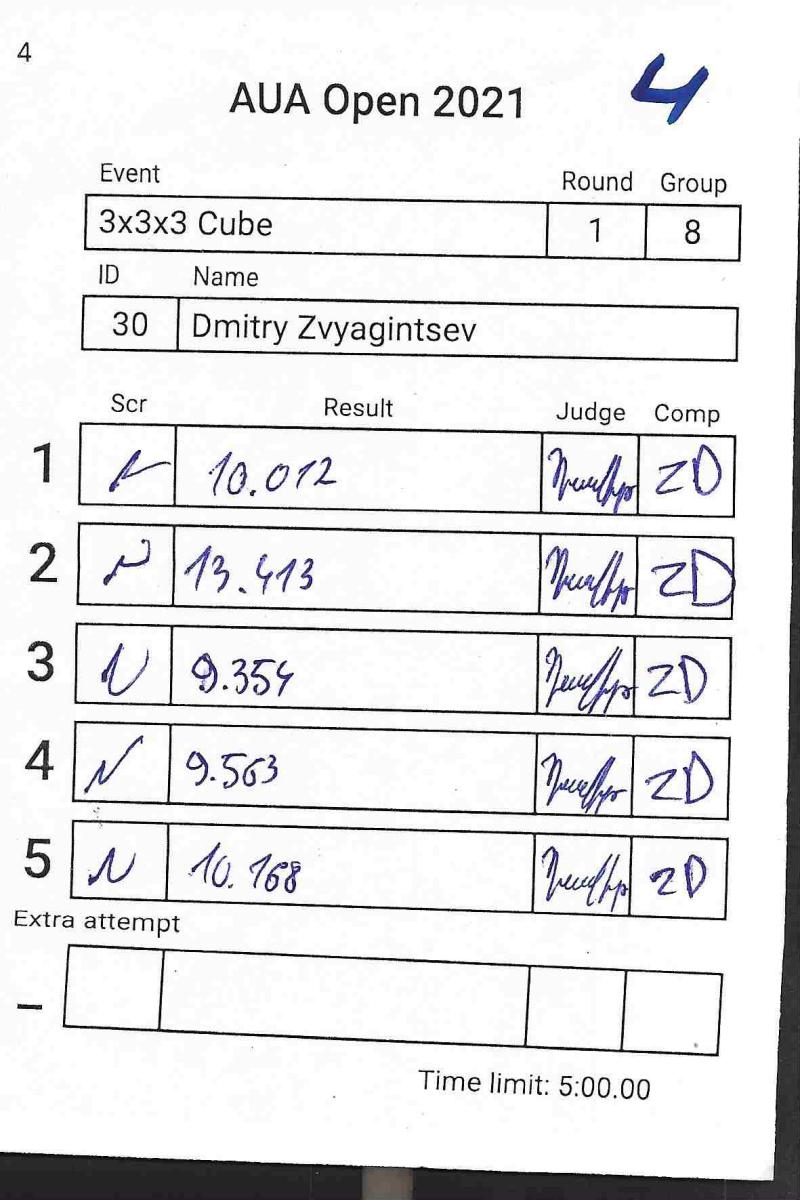 4
AUA Open 2021 4
Event Round Group
3x3x3 Cube 1 8
ID Name
30 Dmitry Zvyagintsev
Scr Result Judge Comp
1 10.012 ZD
2 13.413 ZD
3 9.354 ZD
4 9.563 ZD
5 10.168 ZD
Extra attempt
–
Time limit: 5:00.00